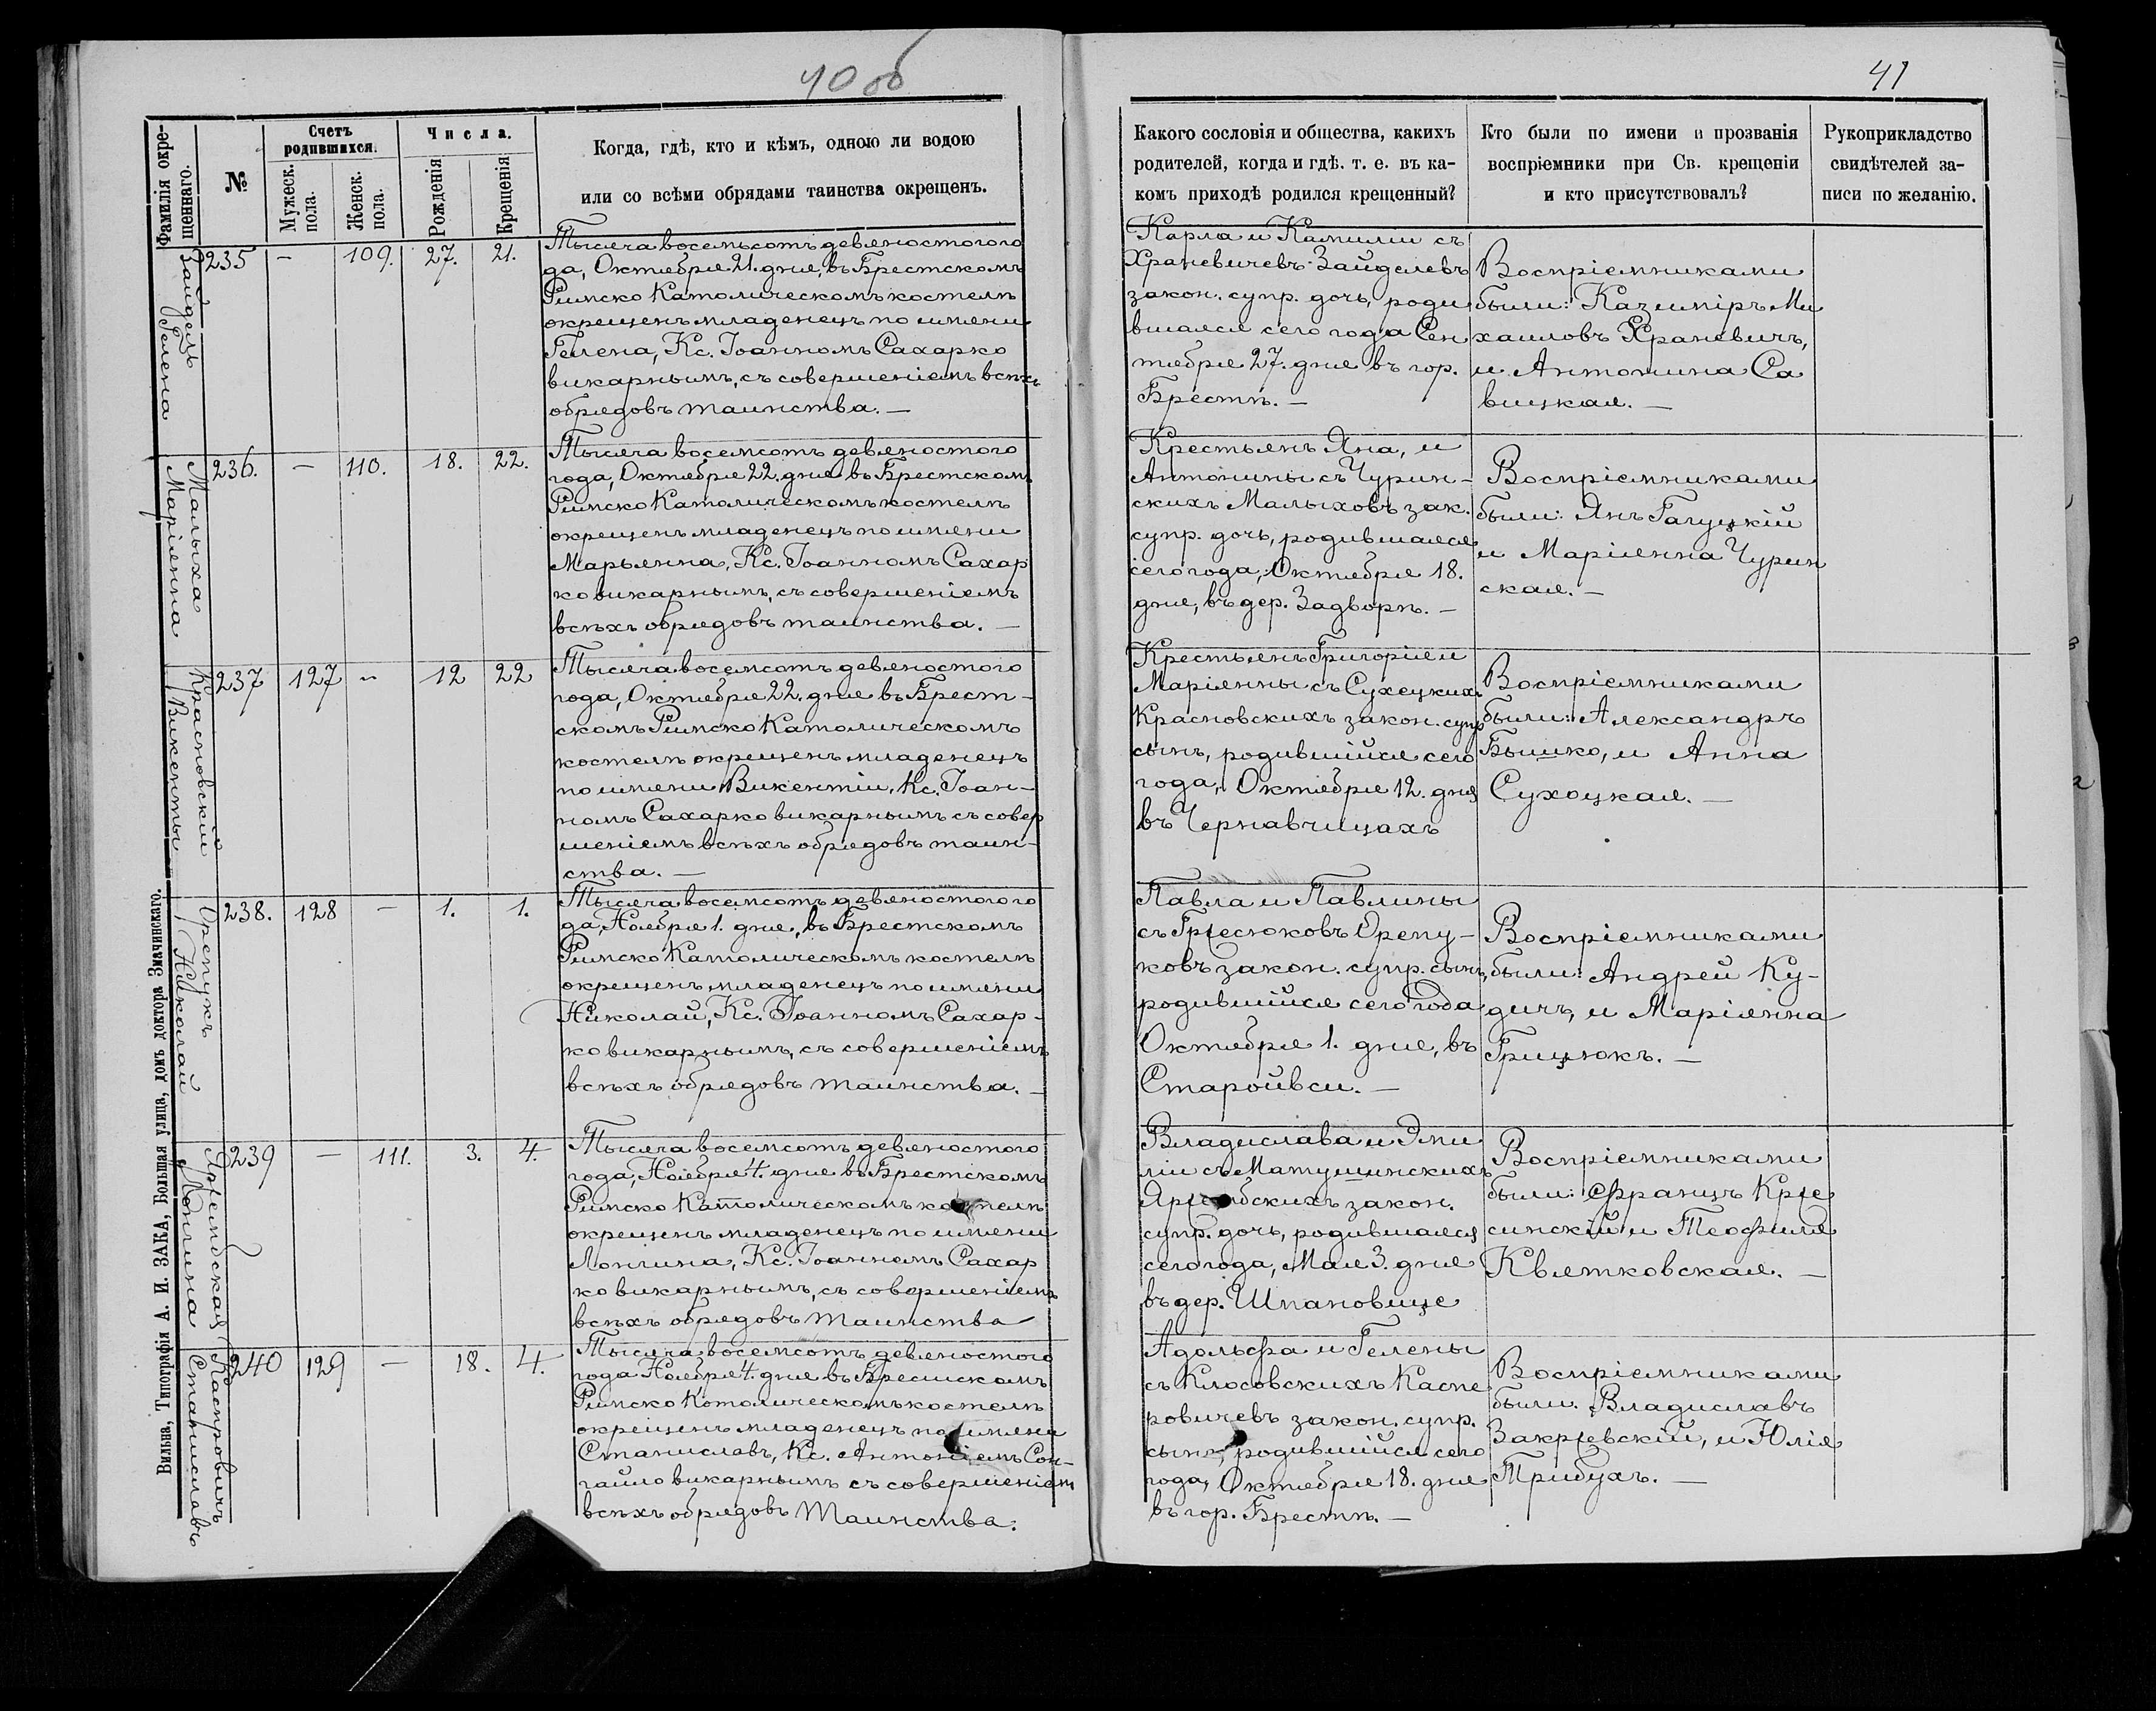 40 об
41
Фамилія окре-
щеннаго.
№
Счетъ
родившихся.
Мужеск.
пола.
Женск.
пола.
Числа.
Рожденія
Крещенія
Когда, гдѣ, кто и кѣмъ, одною ли водою
или со всѣми обрядами таинства окрещенъ.
Какого сословія и общества, какихъ
родителей, когда и гдѣ. т. е. въ ка-
комъ приходѣ родился крещенный?
Кто были по имени и прозванія
воспріемники при Св. крещеніи
и кто присутствовалъ?
Рукоприкладство
свидѣтелей за-
писи по желанію.
Зайдель
Гелена
235 — 109. 27. 21.
Тысяча восемьсотъ девяностого го
да, Октября 21. дня, въ Брестскомъ
Римско Католическомъ костелѣ
окрещенъ младенецъ по имени
Гелена, Кс. Іоанномъ Сахарко
викарнымъ, съ совершеніемъ всѣхъ
обрядовъ таинства. —
Карла и Камиліи съ
Храневичевъ Зайделевъ
закон. супр. дочь, роди
вшаяся сего года Сен
тября 27. дня въ гор.
Брестѣ. —
Воспріемниками
были: Казиміръ Ми
хаиловъ Храневичъ,
и Антонина Са
вицкая. —
Малыха
Маріянна
236. — 110. 18. 22.
Тысяча восемсотъ девяностого
года, Октября 22. дня въ Брестскомъ
Римско Католическомъ костелѣ
окрещенъ младенецъ по имени
Марьянна, Кс. Іоанномъ Сахар
ко викарнымъ, съ совершеніемъ
всѣхъ обрядовъ таинства. —
Крестьянъ Яна, и
Антонины съ Чурин-
скихъ Малыховъ зак.
супр. дочь, родившаяся
сего года, Октября 18.
дня, въ дер. Задворѣ. —
Воспріемниками
были: Янъ Гагуцкій
и Маріянна Чурин
ская. —
Красновскій
Викентъ
237 127 — 12 22
Тысяча восемсотъ девяностого
года, Октября 22. дня въ Брест-
скомъ Римско Католическомъ
костелѣ окрещенъ младенецъ
по имени Викентіи, Кс. Іоан-
номъ Сахарко викарнымъ съ совер
шеніемъ всѣхъ обрядовъ таин-
ства. —
Крестьянъ Григорія и
Маріянны съ Сухецкихъ
Красновскихъ закон. супр
сынъ, родившійся сего
года, Октября 12. дня
въ Чернавчицахъ
Воспріемниками
были: Александръ
Бышко, и Анна
Сухоцкая. —
Орепукъ
Николай
238. 128 — 1. 1.
Тысяча восемсотъ девяностого го
да, Ноября 1. дня, въ Брестскомъ
Римско Католическомъ костелѣ
окрещенъ младенецъ по имени
Николай, Кс. Іоанномъ Сахар-
ко викарнымъ, съ совершеніемъ
всѣхъ обрядовъ таинства. —
Павла и Павлины
съ Грцесюковъ Орепу-
ковъ закон. супр. сынъ,
родившійся сего года
Октября 1. дня, въ
Старойвси. —
Воспріемниками
были: Андрей Ку-
дичъ, и Маріянна
Грицюкъ. —
Лонгина
239 — 111. 3. 4.
Тысяча восемсотъ девяностого
года, Ноября 4. дня въ Брестскомъ
Римско Католическомъ костелѣ
окрещенъ младенецъ по имени
Лонгина, Кс. Іоанномъ Сахар
ко викарнымъ, съ совершеніемъ
всѣхъ обрядовъ таинства
Владислава и Эми
ліи съ Матушинскихъ
закон.
супр. дочь, родившаяся
сего года, Мая 3. дня
въ дер. Шпановице
Воспріемниками
были: Францъ Крже
синскій и Теофиля
Квятковская. —
Каспровичъ
Станиславъ
240 129 — 18. 4.
Тысяча восемсотъ девяностого
года Ноября 4. дня въ Брестскомъ
Римско Католическомъ костелѣ
окрещенъ младенецъ по имени
Станиславъ, Кс. Антоніемъ Сон-
гайло викарнымъ съ совершеніем
всѣхъ обрядовъ Таинства.
Адольфа и Гелены
съ Клосовскихъ Каспе
ровичевъ закон. супр.
сынъ, родившійся сего
года, Октября 18. дня
въ гор. Брестѣ. —
Воспріемниками
были. Владиславъ
Закржевскій, и Юлія
Трибухъ. —
Вильна, Типографія А. И. ЗАКА, Большая улица, домъ доктора Змачинскаго.